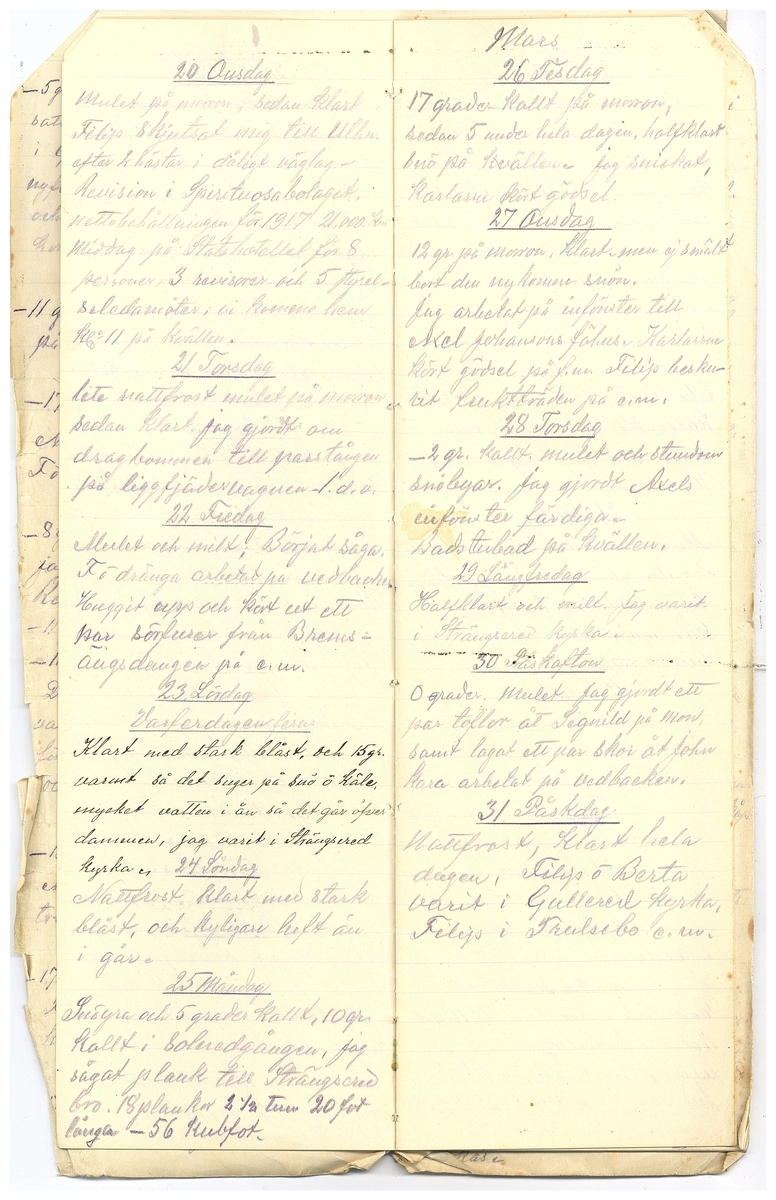 20 Onsdag
Mulet på morron, sedan klart
Filip skjutsat mig till Ulhn.
efter 2 hästar i dåligt väglag.-
Revision i Spirituosabolaget.
nettobehållningen för 1917 21,000 kr
middag på Statshotellet för 8
personer, 3 revisorer och 5 styrel-
seledamöter, vi kommo hem
kl. 11 på kvällen.
21 Torsdag
lite nattfrost mulet på morron
sedan klart. jag gjordt om
dragbommen till parstången
på liggfjädervagnen - 1. d. v.
22 Fredag
Mulet och milt; Börjat såga.
Fö dränga arbetat på vedbacken
Huggit opp och kört ut ett
par sörfurer från Brems=
ängsdungen på e.m.
23 Lördag
Varferdagen
Klart med stark blåst, och 15 gr.
varmt så det suger på snö o käle,
mycket vatten i ån så det går öfver
dammen, jag varit i Strängsered
kyrka.
24 Söndag
Nattfrost klart med stark
blåst, och kyligare luft än
i går.
25 Måndag
Snöyra och 5 grader kallt, 10 gr.
kallt i Solnedgången, jag
sågat plank till Strängsered
bro. 18 plankor 2 1/2 tum 20 fot
långa - 56 Kubfot.
Mars
26 Tisdag
17 grader kallt på morron,
sedan 5 under hela dagen, halfklart
snö på kvällen. jag snickat,
Karlarne kört gödsel.
27 Onsdag
12 gr. på morron, klart men ej smält
bort den nykomne snön.
Jag arbetat på infönster till
Axel Johansons fähus. Karlarne
kört gödsel på f.m. Filip besku-
rit fruktträden på e.m.
28 Torsdag
-2 gr. kallt. mulet och stundom
snöbyar. Jag gjordt Axels
infönster färdiga.
Badstubad på kvällen.
29 Långfredag
Halfklart och milt. Jag varit
i Strängsered kyrka.
30 Påskafton
0 grader. Mulet. Jag gjordt ett
par tofflor åt Segnild på mor,
samt lagat ett par skor åt John
kara arbetat på vedbacken.
31 Påskdag
Nattfrost, klart hela
dagen, Filip o Berta
varit i Gullered kyrka,
Filip i Trulsebo e.m.